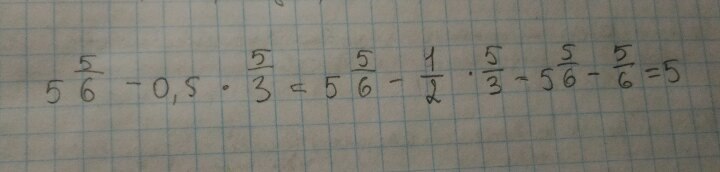 5 5/6 - 0,5 · 5/3 = 5 5/6 - 1/2 · 5/3 = 5 5/6 - 5/6 = 5